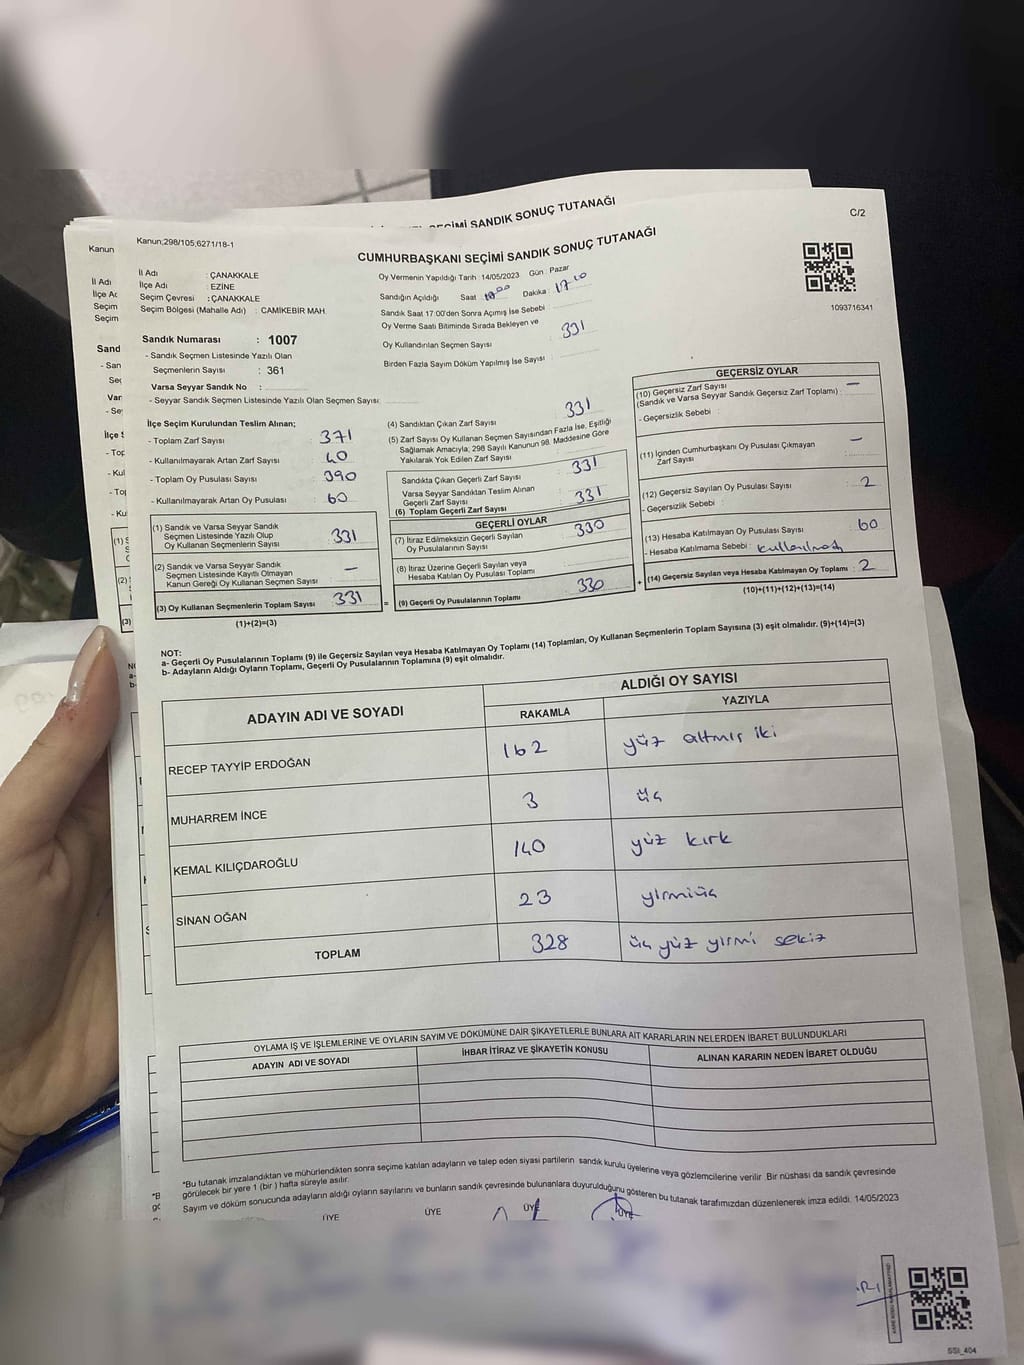 EÇİMİ SANDIK SONUÇ TUTANAĞI
C/2
Kanun
Kanun;298/105,6271/18-1
CUMHURBAŞKANI SEÇİMİ SANDIK SONUÇ TUTANAĞI
1093716341
İl Adı : ÇANAKKALE
İlçe Adı : EZİNE
Seçim Çevresi : ÇANAKKALE
Seçim Bölgesi (Mahalle Adı) : CAMİKEBİR MAH.
Oy Vermenin Yapıldığı Tarih 14/05/2023 Gün : Pazar
Sandığın Açıldığı Saat Dakika : 17 10
Sandık Saat 17:00'den Sonra Açımış İse Sebebi
Oy Verme Saati Bitiminde Sırada Bekleyen ve
Oy Kullandırılan Seçmen Sayısı 331
Birden Fazla Sayım Döküm Yapılmış İse Sayısı :
Sandık Numarası : 1007
- Sandık Seçmen Listesinde Yazılı Olan
Seçmenlerin Sayısı : 361
Varsa Seyyar Sandık No :
- Seyyar Sandık Seçmen Listesinde Yazılı Olan Seçmen Sayısı:
İlçe Seçim Kurulundan Teslim Alınan;
- Toplam Zarf Sayısı : 371
- Kullanılmayarak Artan Zarf Sayısı : 40
- Toplam Oy Pusulası Sayısı : 390
- Kullanılmayarak Artan Oy Pusulası : 60
(1) Sandık ve Varsa Seyyar Sandık
Seçmen Listesinde Yazılı Olup
Oy Kullanan Seçmenlerin Sayısı : 331
(2) Sandık ve Varsa Seyyar Sandık
Seçmen Listesinde Kayıtlı Olmayan
Kanun Gereği Oy Kullanan Seçmen Sayısı : —
(3) Oy Kullanan Seçmenlerin Toplam Sayısı : 331
(1)+(2)=(3)
(4) Sandıktan Çıkan Zarf Sayısı 331
(5) Zarf Sayısı Oy Kullanan Seçmen Sayısından Fazla İse, Eşitliği
Sağlamak Amacıyla; 298 Sayılı Kanunun 98. Maddesine Göre
Yakılarak Yok Edilen Zarf Sayısı
Sandıkta Çıkan Geçerli Zarf Sayısı : 331
Varsa Seyyar Sandıktan Teslim Alınan
Geçerli Zarf Sayısı
(6) Toplam Geçerli Zarf Sayısı : 331
GEÇERLİ OYLAR
(7) İtiraz Edilmeksizin Geçerli Sayılan
Oy Pusulalarının Sayısı : 330
(8) İtiraz Üzerine Geçerli Sayılan veya
Hesaba Katılan Oy Pusulası Toplamı
(9) Geçerli Oy Pusulalarının Toplamı : 330
GEÇERSİZ OYLAR
(10) Geçersiz Zarf Sayısı : —
(Sandık ve Varsa Seyyar Sandık Geçersiz Zarf Toplamı)
- Geçersizlik Sebebi :
(11) İçinden Cumhurbaşkanı Oy Pusulası Çıkmayan
Zarf Sayısı : —
(12) Geçersiz Sayılan Oy Pusulası Sayısı : 2
- Geçersizlik Sebebi :
(13) Hesaba Katılmayan Oy Pusulası Sayısı : 60
- Hesaba Katılmama Sebebi :
(14) Geçersiz Sayılan veya Hesaba Katılmayan Oy Toplamı : 2
(10)+(11)+(12)+(13)=(14)
NOT:
a- Geçerli Oy Pusulalarının Toplamı (9) ile Geçersiz Sayılan veya Hesaba Katılmayan Oy Toplamı (14) Toplamları, Oy Kullanan Seçmenlerin Toplam Sayısına (3) eşit olmalıdır. (9)+(14)=(3)
b- Adayların Aldığı Oyların Toplamı, Geçerli Oy Pusulalarının Toplamına (9) eşit olmalıdır.
ADAYIN ADI VE SOYADI
ALDIĞI OY SAYISI
RAKAMLA YAZIYLA
RECEP TAYYİP ERDOĞAN 162 yüz altmış iki
MUHARREM İNCE 3 üç
KEMAL KILIÇDAROĞLU 140 yüz kırk
SİNAN OĞAN 23 yirmiüç
TOPLAM 328 üç yüz yirmi sekiz
OYLAMA İŞ VE İŞLEMLERİNE VE OYLARIN SAYIM VE DÖKÜMÜNE DAİR ŞİKAYETLERLE BUNLARA AİT KARARLARIN NELERDEN İBARET BULUNDUKLARI
ADAYIN ADI VE SOYADI İHBAR İTİRAZ VE ŞİKAYETİN KONUSU ALINAN KARARIN NEDEN İBARET OLDUĞU
*Bu tutanak imzalandıktan ve mühürlendikten sonra seçime katılan adayların ve talep eden siyasi partilerin sandık kurulu üyelerine veya gözlemcilerine verilir .Bir nüshası da sandık çevresinde
görülecek bir yere 1 (bir ) hafta süreyle asılır.
Sayım ve döküm sonucunda adayların aldığı oyların sayılarını ve bunların sandık çevresinde bulunanlara duyurulduğunu gösteren bu tutanak tarafımızdan düzenlenerek imza edildi. 14/05/2023
ÜYE ÜYE ÜYE ÜYE
SSI_404